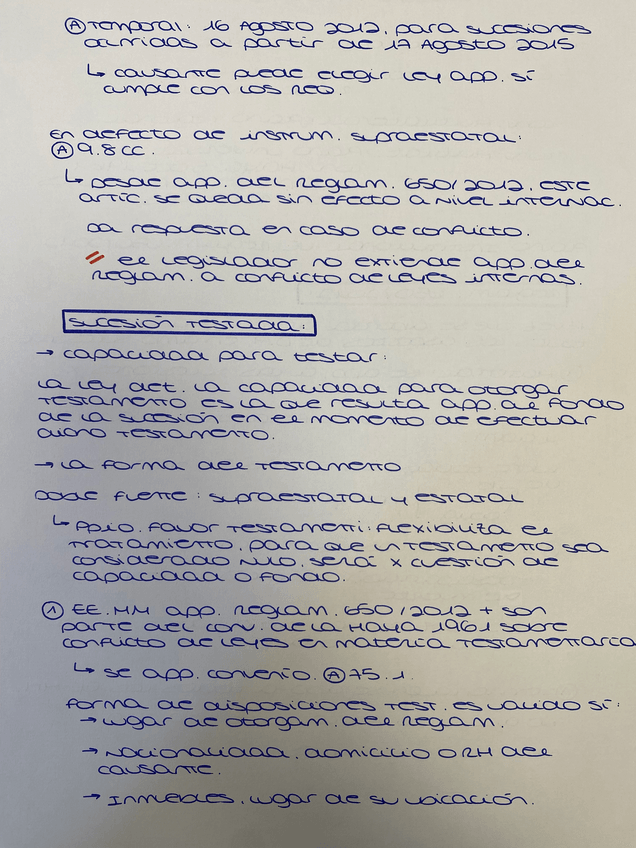 Ⓐ Temporal: 16 Agosto 2012, para sucesiones
ocurridas a partir de 17 Agosto 2015
↳ causante puede elegir ley app. si
cumple con los req.
En defecto de instrum. supraestatal:
Ⓐ 9.8 CC.
↳ Desde app. del Reglam. 650/2012, este
artíc. se queda sin efecto a nivel internac.
Da respuesta en caso de conflicto.
= El legislador no extiende app. del
Reglam. a conflicto de leyes internas.
Sucesión testada:
→ capacidad para testar:
La ley det. la capacidad para otorgar
testamento es la que resulta app. al fondo
de la sucesión en el momento de efectuar
dicho testamento.
→ La forma del testamento
Doble fuente: supraestatal y estatal
↳ Ppio. favor testamenti: flexibiliza el
tratamiento, para que un testamento sea
considerado nulo, será x cuestión de
capacidad o fondo.
① EE.MM app. Reglam. 650/2012 + son
parte del Conv. de la Haya 1961 sobre
conflicto de leyes en materia testamentaria
↳ se app. convenio. Ⓐ 75.1.
Forma de disposiciones test. es válido si:
→ Lugar de otorgam. del Reglam.
→ Nacionalidad, domicilio o RH del
causante.
→ Inmuebles, lugar de su ubicación.